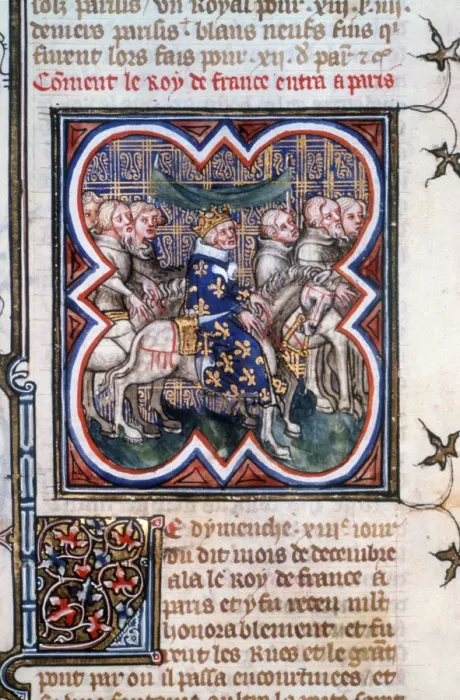 parisis / un Royal pour .xiii. s. iiii.
deniers parisis t blans neufs fins q'
furent lors fais pour .xii. d par̄ ⁊c
Cōment le Roy de france entra a paris
LE dymenche .xiiie. iour
du dit mois de decembre
ala le Roy de france a
paris et y fu receu mlt
honorablement et fu
rent les Rues et le grāt
pont par ou il passa encourtinees / et